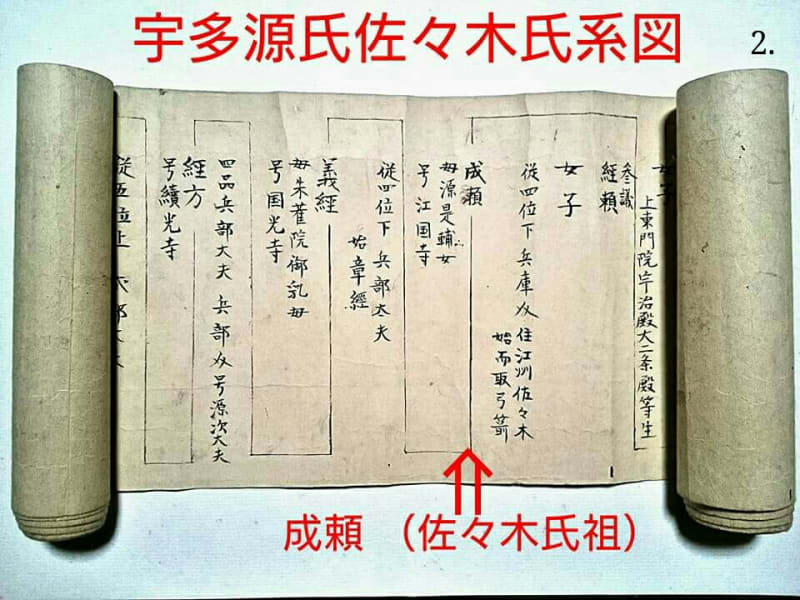 宇多源氏佐々木氏系図
2.
女子
上東門院宇治殿大二条殿等生
参議
経頼
女子
従四位下 兵庫 住江州佐々木
始而取弓箭
成頼
母源是輔女
号江国寺
従四位下 兵部大夫
始章経
義経
母朱雀院御乳母
号国光寺
四品兵部大夫 兵部 号源次大夫
経方
号續光寺
成頼 （佐々木氏祖）